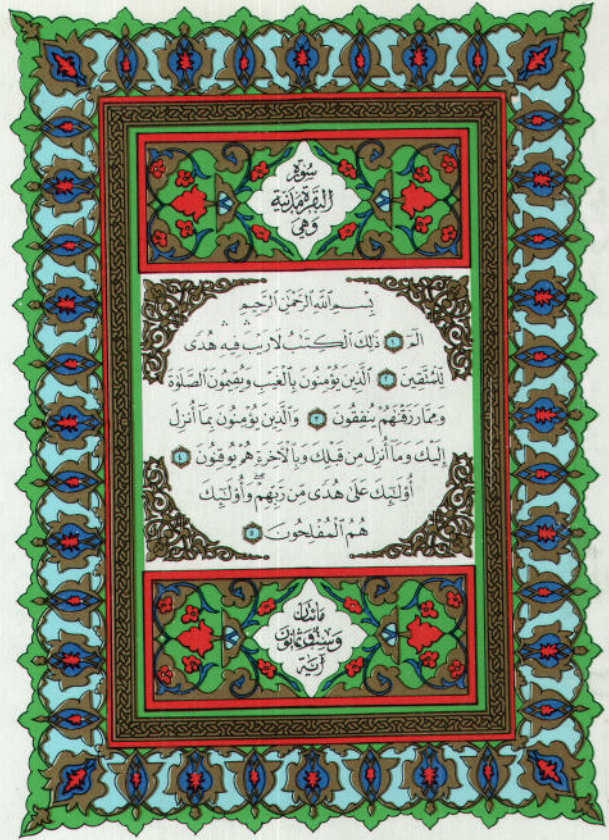 سُورَةُ
البَقَرَةِ مَدَنِيَّة
وَهِيَ
بِسْمِ ٱللَّهِ ٱلرَّحْمَٰنِ ٱلرَّحِيمِ
الٓمٓ ١ ذَٰلِكَ ٱلْكِتَٰبُ لَا رَيْبَ ۛ فِيهِ ۛ هُدًى
لِّلْمُتَّقِينَ ٢ ٱلَّذِينَ يُؤْمِنُونَ بِٱلْغَيْبِ وَيُقِيمُونَ ٱلصَّلَوٰةَ
وَمِمَّا رَزَقْنَٰهُمْ يُنفِقُونَ ٣ وَٱلَّذِينَ يُؤْمِنُونَ بِمَآ أُنزِلَ
إِلَيْكَ وَمَآ أُنزِلَ مِن قَبْلِكَ وَبِٱلْءَاخِرَةِ هُمْ يُوقِنُونَ ٤
أُو۟لَٰٓئِكَ عَلَىٰ هُدًى مِّن رَّبِّهِمْ ۖ وَأُو۟لَٰٓئِكَ
هُمُ ٱلْمُفْلِحُونَ ٥
مَائتَان
وَسِتٌّ وَثَمَانُونَ
آيَة